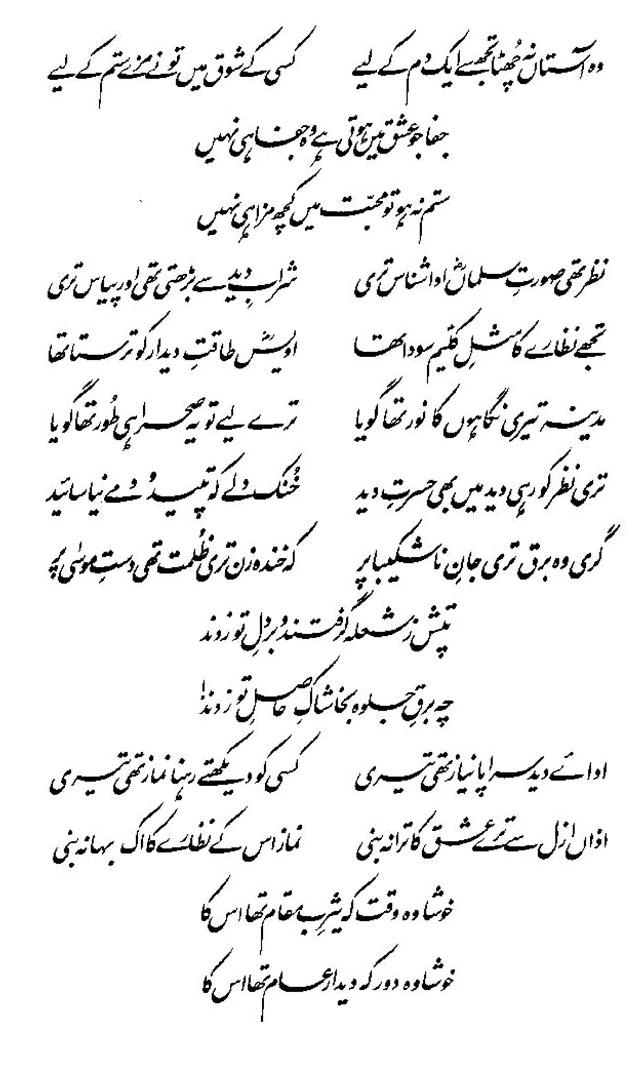 وہ آستاں نہ چُھٹا تجھ سے ایک دم کے لیے کسی کے شوق میں تو نے مزے ستم کے لیے
جفا جو عشق میں ہوتی ہے وہ جفا ہی نہیں
ستم نہ ہو تو محبّت میں کچھ مزا ہی نہیں
نظر تھی صورتِ سلماںؓ ادا شناس تری شرابِ دید سے بڑھتی تھی اور پیاس تری
تجھے نظارے کا مثلِ کلیم سودا تھا اویسؓ طاقتِ دیدار کو ترستا تھا
مدینہ تیری نگاہوں کا نور تھا گویا ترے لیے تو یہ صحرا ہی طُور تھا گویا
تری نظر کو رہی دید میں بھی حسرتِ دید خُنک دلے کہ تپید و دمے نیاسائید
گری وہ برق تری جانِ ناشکیبا پر کہ خندہ زن تری ظُلمت تھی دستِ موسٰی پر
تپش ز شعلہ گرفتند و بر دلِ تو زدند
چہ برقِ جلوہ بخاشاکِ حاصلِ تو زدند!
اداۓ دید سراپا نیاز تھی تیری کسی کو دیکھتے رہنا نماز تھی تیری
اذاں ازل سے ترے عشق کا ترانہ بنی نماز اس کے نظارے کا اک بہانہ بنی
خوشا وہ وقت کہ یثرب مقام تھا اس کا
خوشا وہ دور کہ دیدار عام تھا اس کا